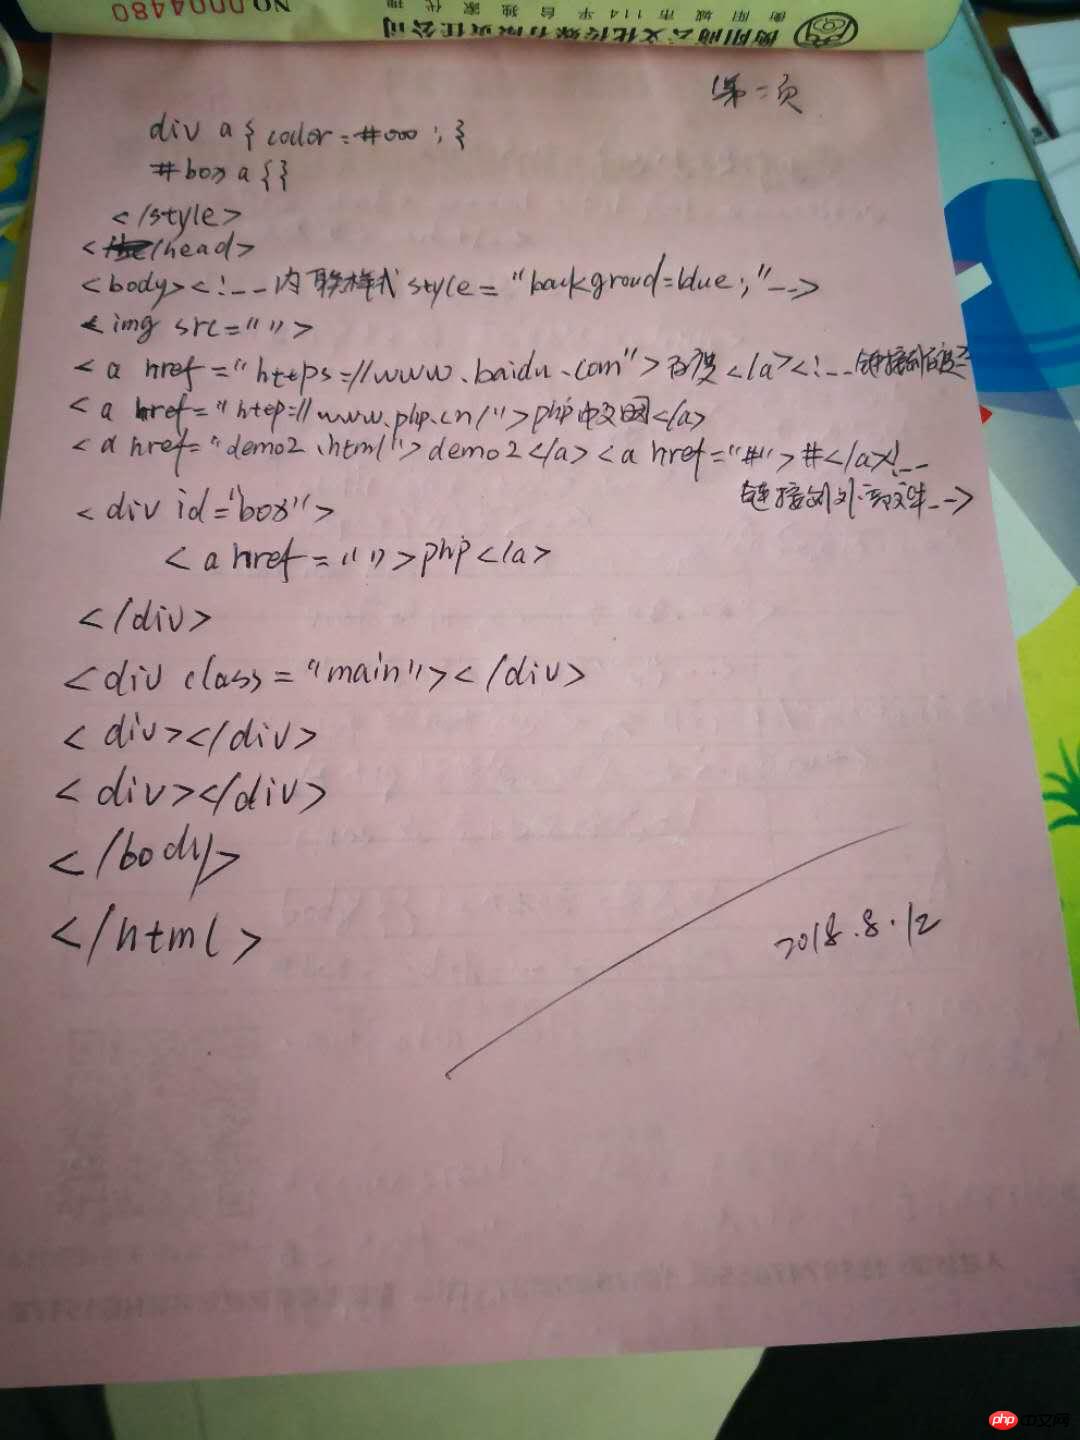 NO.0004480
衡阳尚云文化传媒有限责任公司
衡阳城市114平台独家代理
第二页
div a { color = #000 ; }
#box a { }
</style>
</head>
<body><!-- 内联样式 style = "backgroud=blue;"-->
<img src="">
<a href="https://www.baidu.com">百度</a><!-- 链接到百度
<a href="http://www.php.cn/">php中文网</a>
<a href="demo2.html">demo2</a><a href="#">#</a>!--
链接到外部文件-->
<div id="box">
<a href="">php</a>
</div>
<div class="main"></div>
<div></div>
<div></div>
</body>
</html>
2018.8.12
php中文网